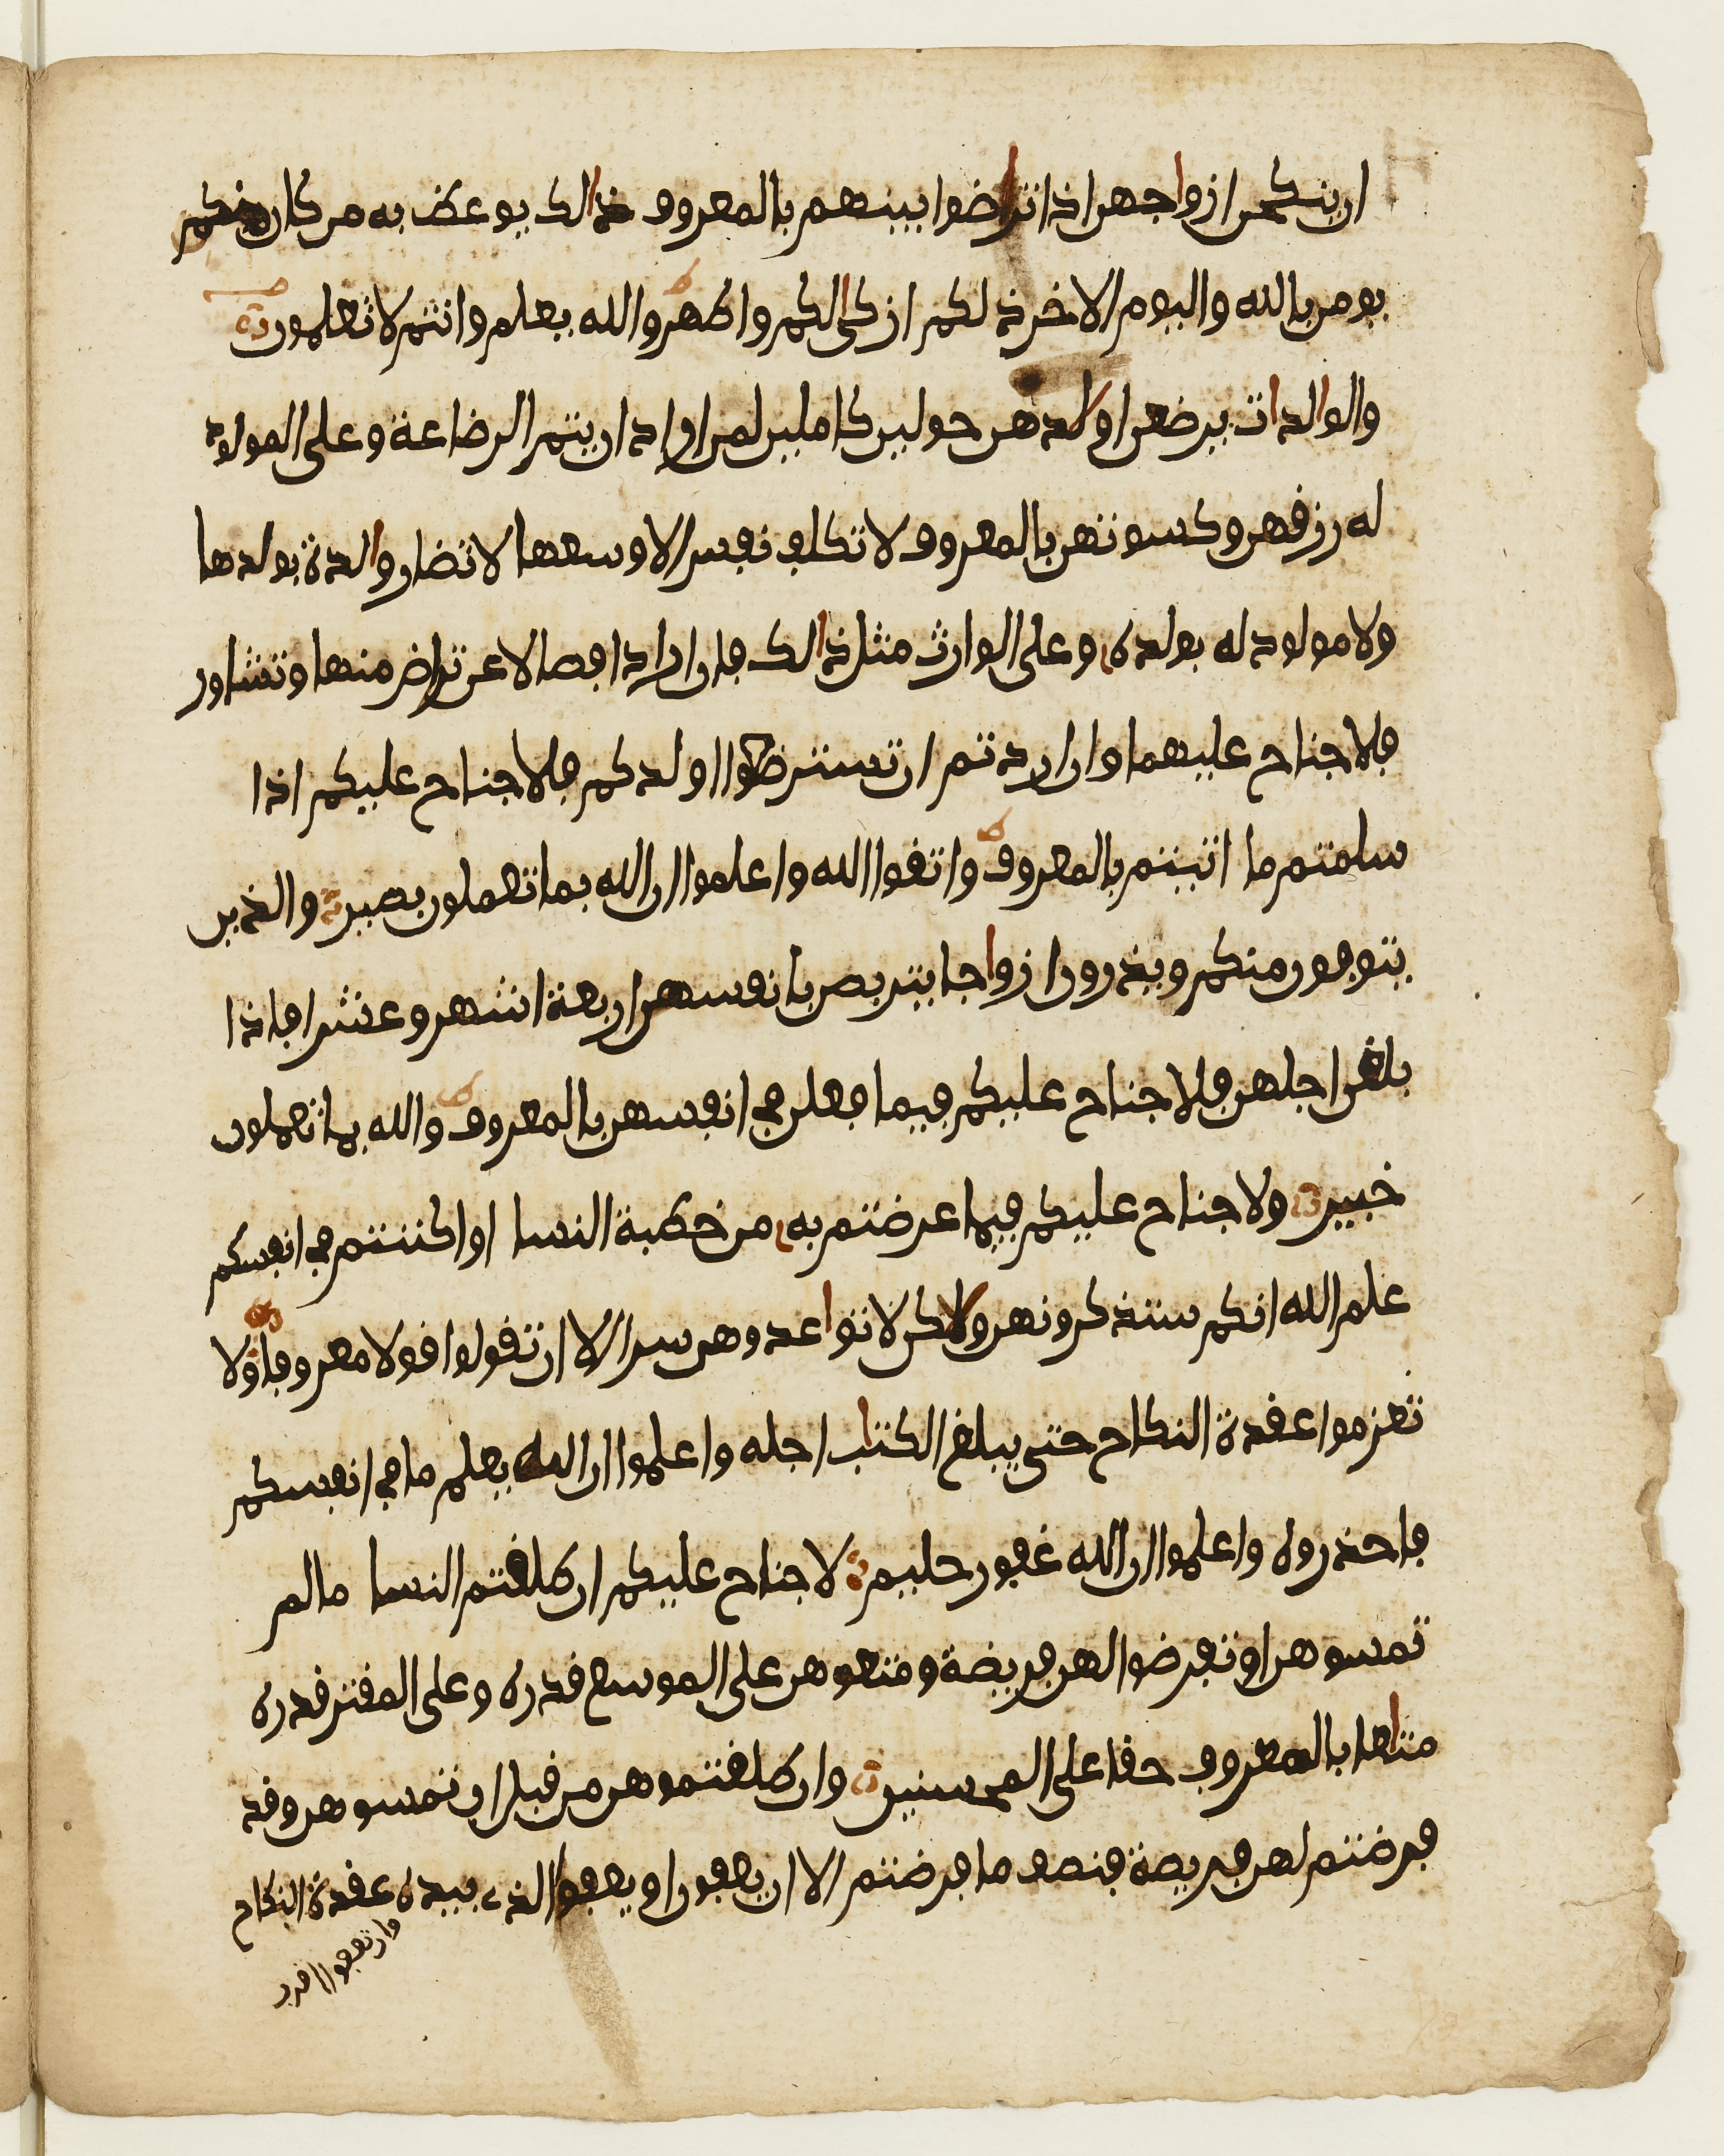 ان ينكحن ازواجهن اذا تراضوا بينهم بالمعروف ذالك يوعظ به من كان منكم
يومن بالله واليوم الاخر ذلكم ازكى لكم واطهر والله يعلم وانتم لا تعلمون
والوالدات يرضعن اولدهن حولين كاملين لمن اراد ان يتم الرضاعة وعلى المولود
له رزقهن وكسوتهن بالمعروف لا تكلف نفس الا وسعها لا تضار والدة بولدها
ولا مولود له بولده وعلى الوارث مثل ذالك فان ارادا فصالا عن تراض منهما وتشاور
فلا جناح عليهما وان اردتم ان تسترضعوا اولدكم فلا جناح عليكم اذا
سلمتم ما اتيتم بالمعروف واتقوا الله واعلموا ان الله بما تعملون بصير والذين
يتوفون منكم ويذرون ازواجا يتربصن بانفسهن اربعة اشهر وعشرا فاذا
بلغن اجلهن فلا جناح عليكم فيما فعلن في انفسهن بالمعروف والله بما تعملون
خبير ولا جناح عليكم فيما عرضتم به من خطبة النسا او اكننتم في انفسكم
علم الله انكم ستذكرونهن ولاكن لا تواعدوهن سرا الا ان تقولوا قولا معروفا ولا
تعزموا عقدة النكاح حتى يبلغ الكتاب اجله واعلموا ان الله يعلم ما في انفسكم
فاحذروه واعلموا ان الله غفور حليم لا جناح عليكم ان طلقتم النسا ما لم
تمسوهن او تفرضوا لهن فريضة ومتعوهن على الموسع قدره وعلى المقتر قدره
متاعا بالمعروف حقا على المحسنين وان طلقتموهن من قبل ان تمسوهن وقد
فرضتم لهن فريضة فنصف ما فرضتم الا ان يعفون او يعفوا الذي بيده عقدة النكاح
وان تعفوا اقرب